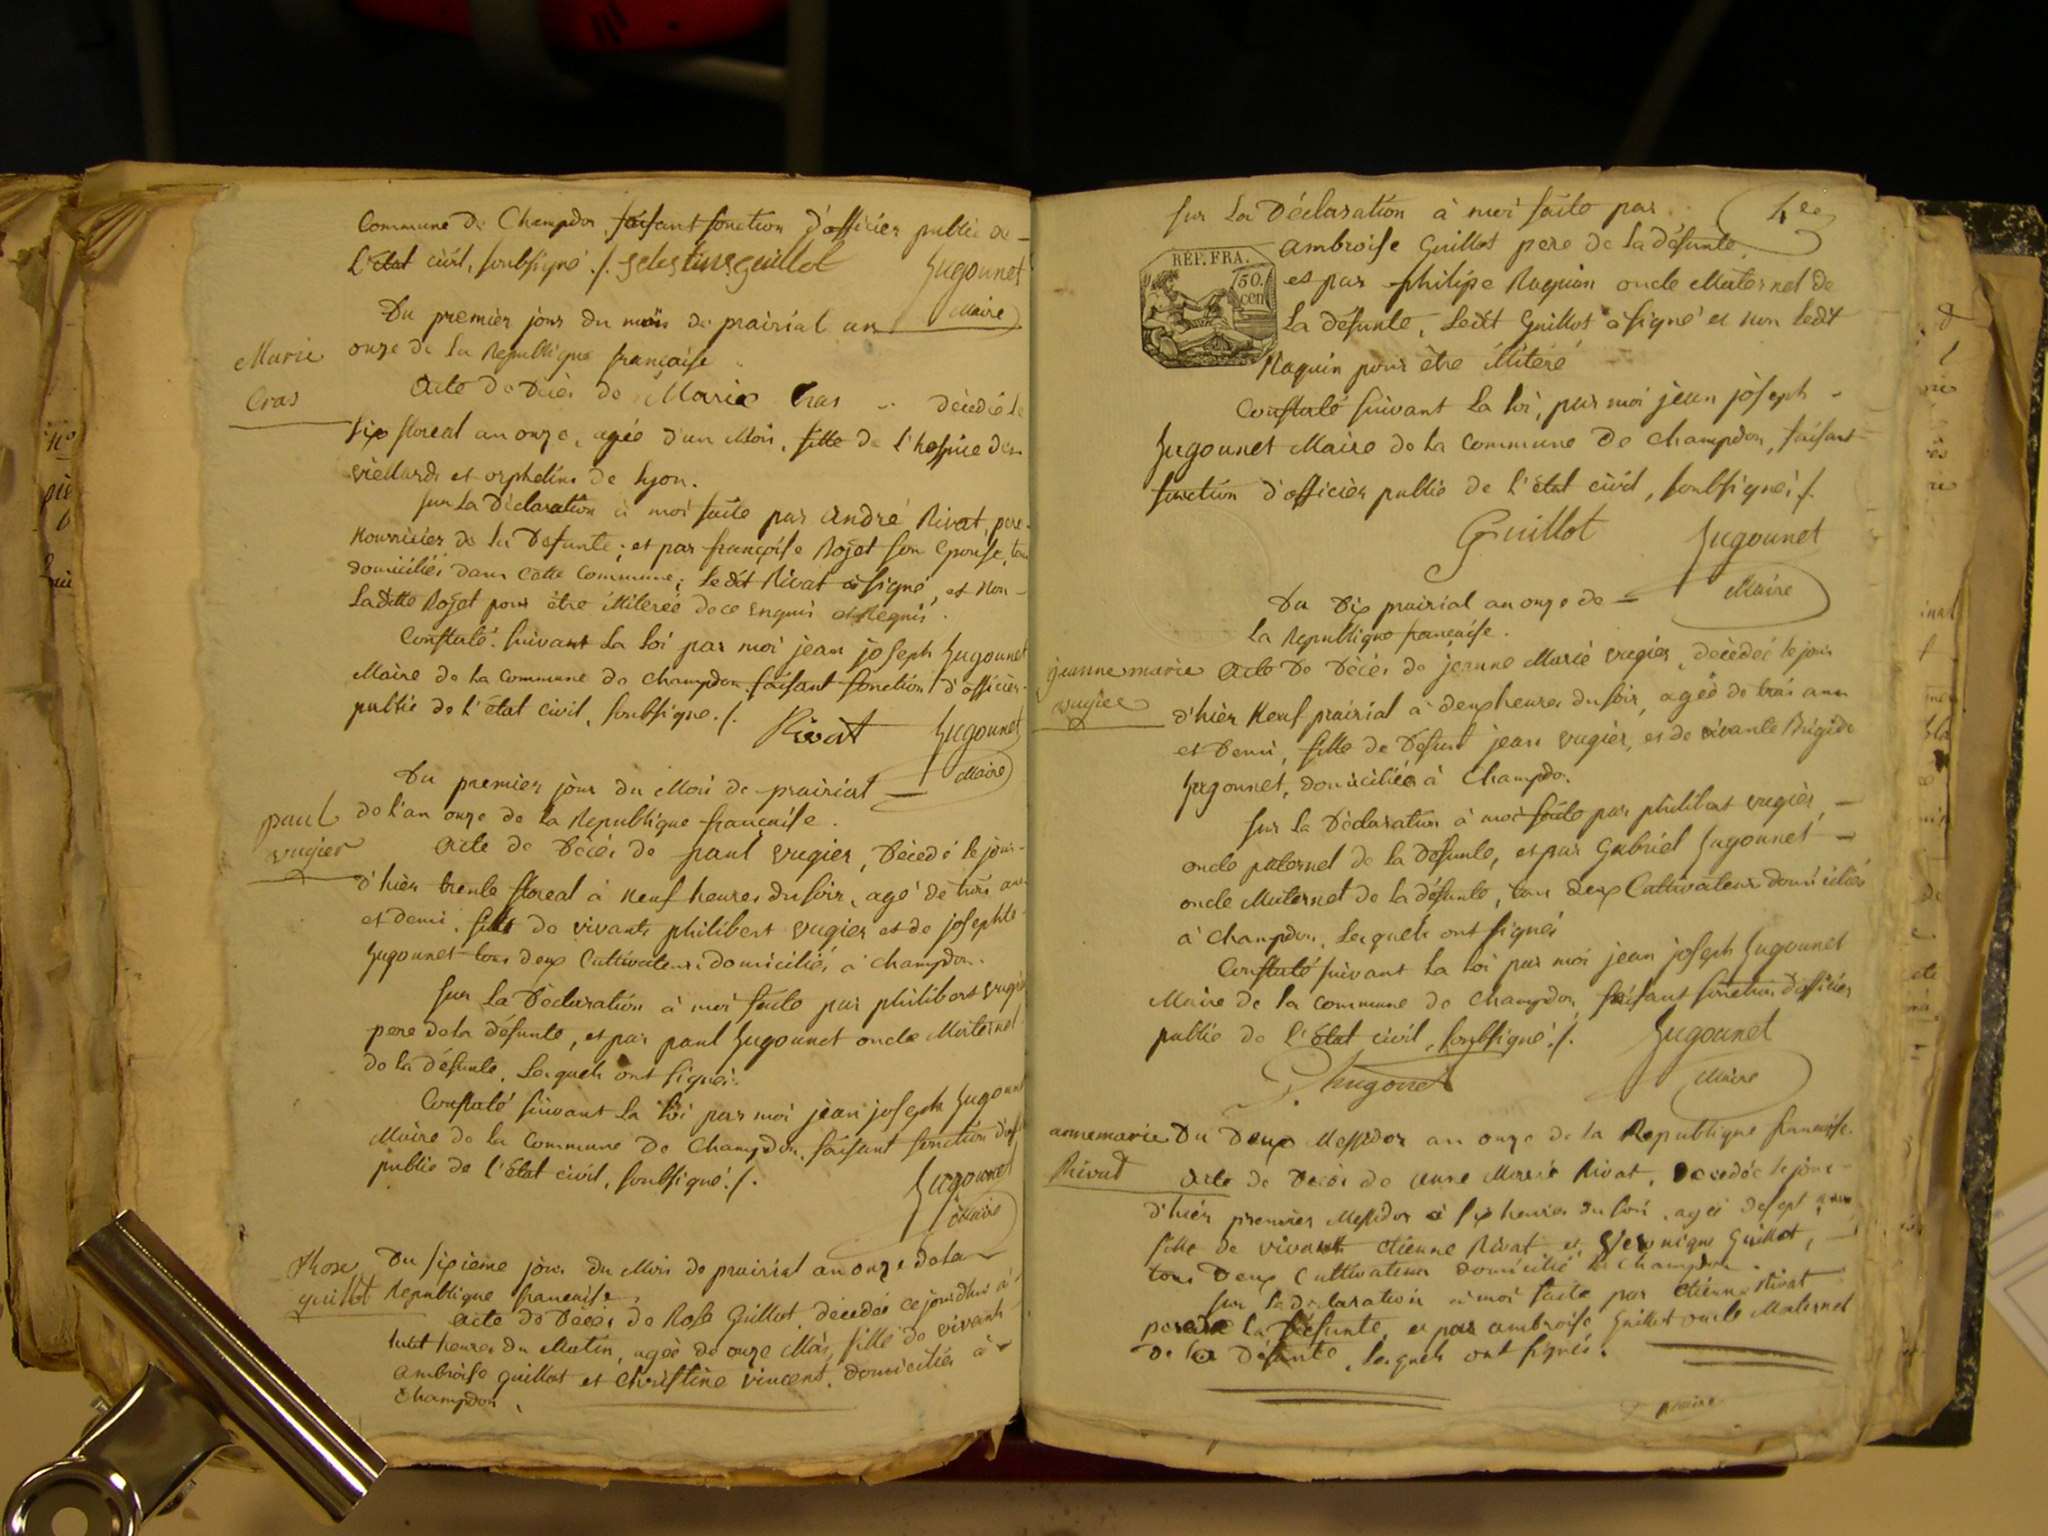 Commune de Champdor faisant fonction d'officier public de
L'état civil, soubsigné ./. gelestins guillot Jugounet
Maire
Du premier jour du mois de prairial an
onze de la Republique française
Marie
Cras
Acte de Décès de Marie Cras - décédé le
six floreal an onze, agée d'un Mois, fille de l'hospice des
viellards et orphelins de Lyon.
sur La Déclaration à moi faite par andré Rivat, pere
Nourricier de la Defunte; et par françoise Rojet son Epouse, tous
domiciliés dans Cette Commune; ledit Rivat à signé, et Non
Ladite Rojet pour être illiterée de ce enquis et Requis.
Constaté suivant La Loi par moi jean joseph Jugounet
Maire de La Commune de champdor faisant fonction d'officier
public de L'état civil, soubsigné ./.
Rivat Jugounet
Maire
Du premier jour du Mois de prairial
de l'an onze de la Republique française.
paul
vugier
Acte de Décès de paul vugier, Décédé le jour
d'hièr trente floreal à Neuf heures du soir, agé de trois ans
et demi, fils de vivants philibert vugier et de josephte
Jugounet tous deux Cultivateurs domiciliés à champdor.
sur La Déclaration à moi faite par philibert vugier
pere de la défunte, et par paul Jugounet oncle Maternel
de la défunte, Lesquels ont signés.
Constaté suivant La Loi par moi jean joseph Jugounet
Maire de la Commune de Champdor, faisant fonction d'off
public de l'Etat civil, soubsigné ./.
Jugounet
Maire
Rose
guillot
Du sixième jour du Mois de prairial an onze de la
Republique française,
Acte de Décès de Rose Guillot, décédée cejourdhui à
huit heures du Matin, agée de onze Mois, fille de vivants
ambroise guillot et christine vincent, domiciliés à
Champdor,
4e
sur La Déclaration à moi faite par
RÉP. FRA.
50.
cen
ambroise Guillot pere de la défunte,
et par philipe Raquin oncle Maternel de
La défunte, Ledit Guillot à signé et non ledit
Raquin pour être illiteré
Constaté suivant La Loi, par moi jean joseph
Jugounet Maire de la Commune de champdor, faisant
fonction d'officièr public de l'état civil, soubsigné ./.
Guillot Jugounet
Maire
Du Dix prairial an onze de
La Republique française.
jeanne marie
vugier
Acte De Décès de jeanne Marie vugier, décédée le jour
d'hièr Neuf prairial à deux heures du soir, agée de trois ans
et Demi, fille de Défunt jean vugier, et de vivante Brigide
Jugounet, domiciliée à Champdor.
sur La Déclaration à moi faite par philibert vugier,
oncle paternel de la défunte, et par Gabriel Jugounet
oncle Maternel de la défunte, tous deux Cultivateurs domiciliés
à champdor, Lesquels ont signés
Constaté suivant La Loi par moi jean joseph Jugounet
Maire de la commune de Champdor, faisant fonction d'officier
public de l'Etat civil, soubsigné ./.
Jugounet
Maire
anne marie
Rivat
Du Deux Messidor an onze de la Republique française.
Acte de Décès de anne Marie Rivat, Décédée le jour
d'hièr premier Messidor à six heures du soir, agée de sept ans
fille de vivant etienne Rivat et vieronique Guillot,
tous Deux Cultivateurs domicilié à Champdor.
sur la Declaration à moi faite par etienne Rivat
pere de La Défunte, et par ambroise Guillot oncle Maternel
de La Défunte, Lesquels ont signés.
Maire